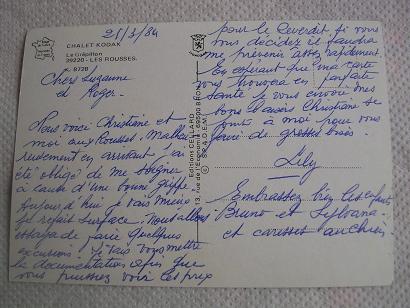 25/3/84
CHALET KODAK
Le Grépillon
39220 - LES ROUSSES.
K. 8728
Chers Suzanne
et Roger.
Nous voici Christiane et
moi aux Rousses. Malheu
reusement en arrivant j'ai
été obligé de me soigner
à cause d'une bonne grippe
Aujourd'hui je vais mieux
je refait surface. Nous allons
essayer de faire quelques
excursions. Je vais vous mettre
la documentation afin que
vous puissiez voir les prix
Editions CELLARD
S.P.A.D.E.M.
pour le Reverdit. Si vous
vous décidez il faudra
me prévenir assez rapidement.
En espérant que ma carte
vous trouvera en parfaite
santé je vous envoie mes
bons baisers Christiane se
joint à moi pour vous
faire de grosses bises.
Lily
Embrassez bien les enfants
Bruno et Sylvana
et caresses au chien